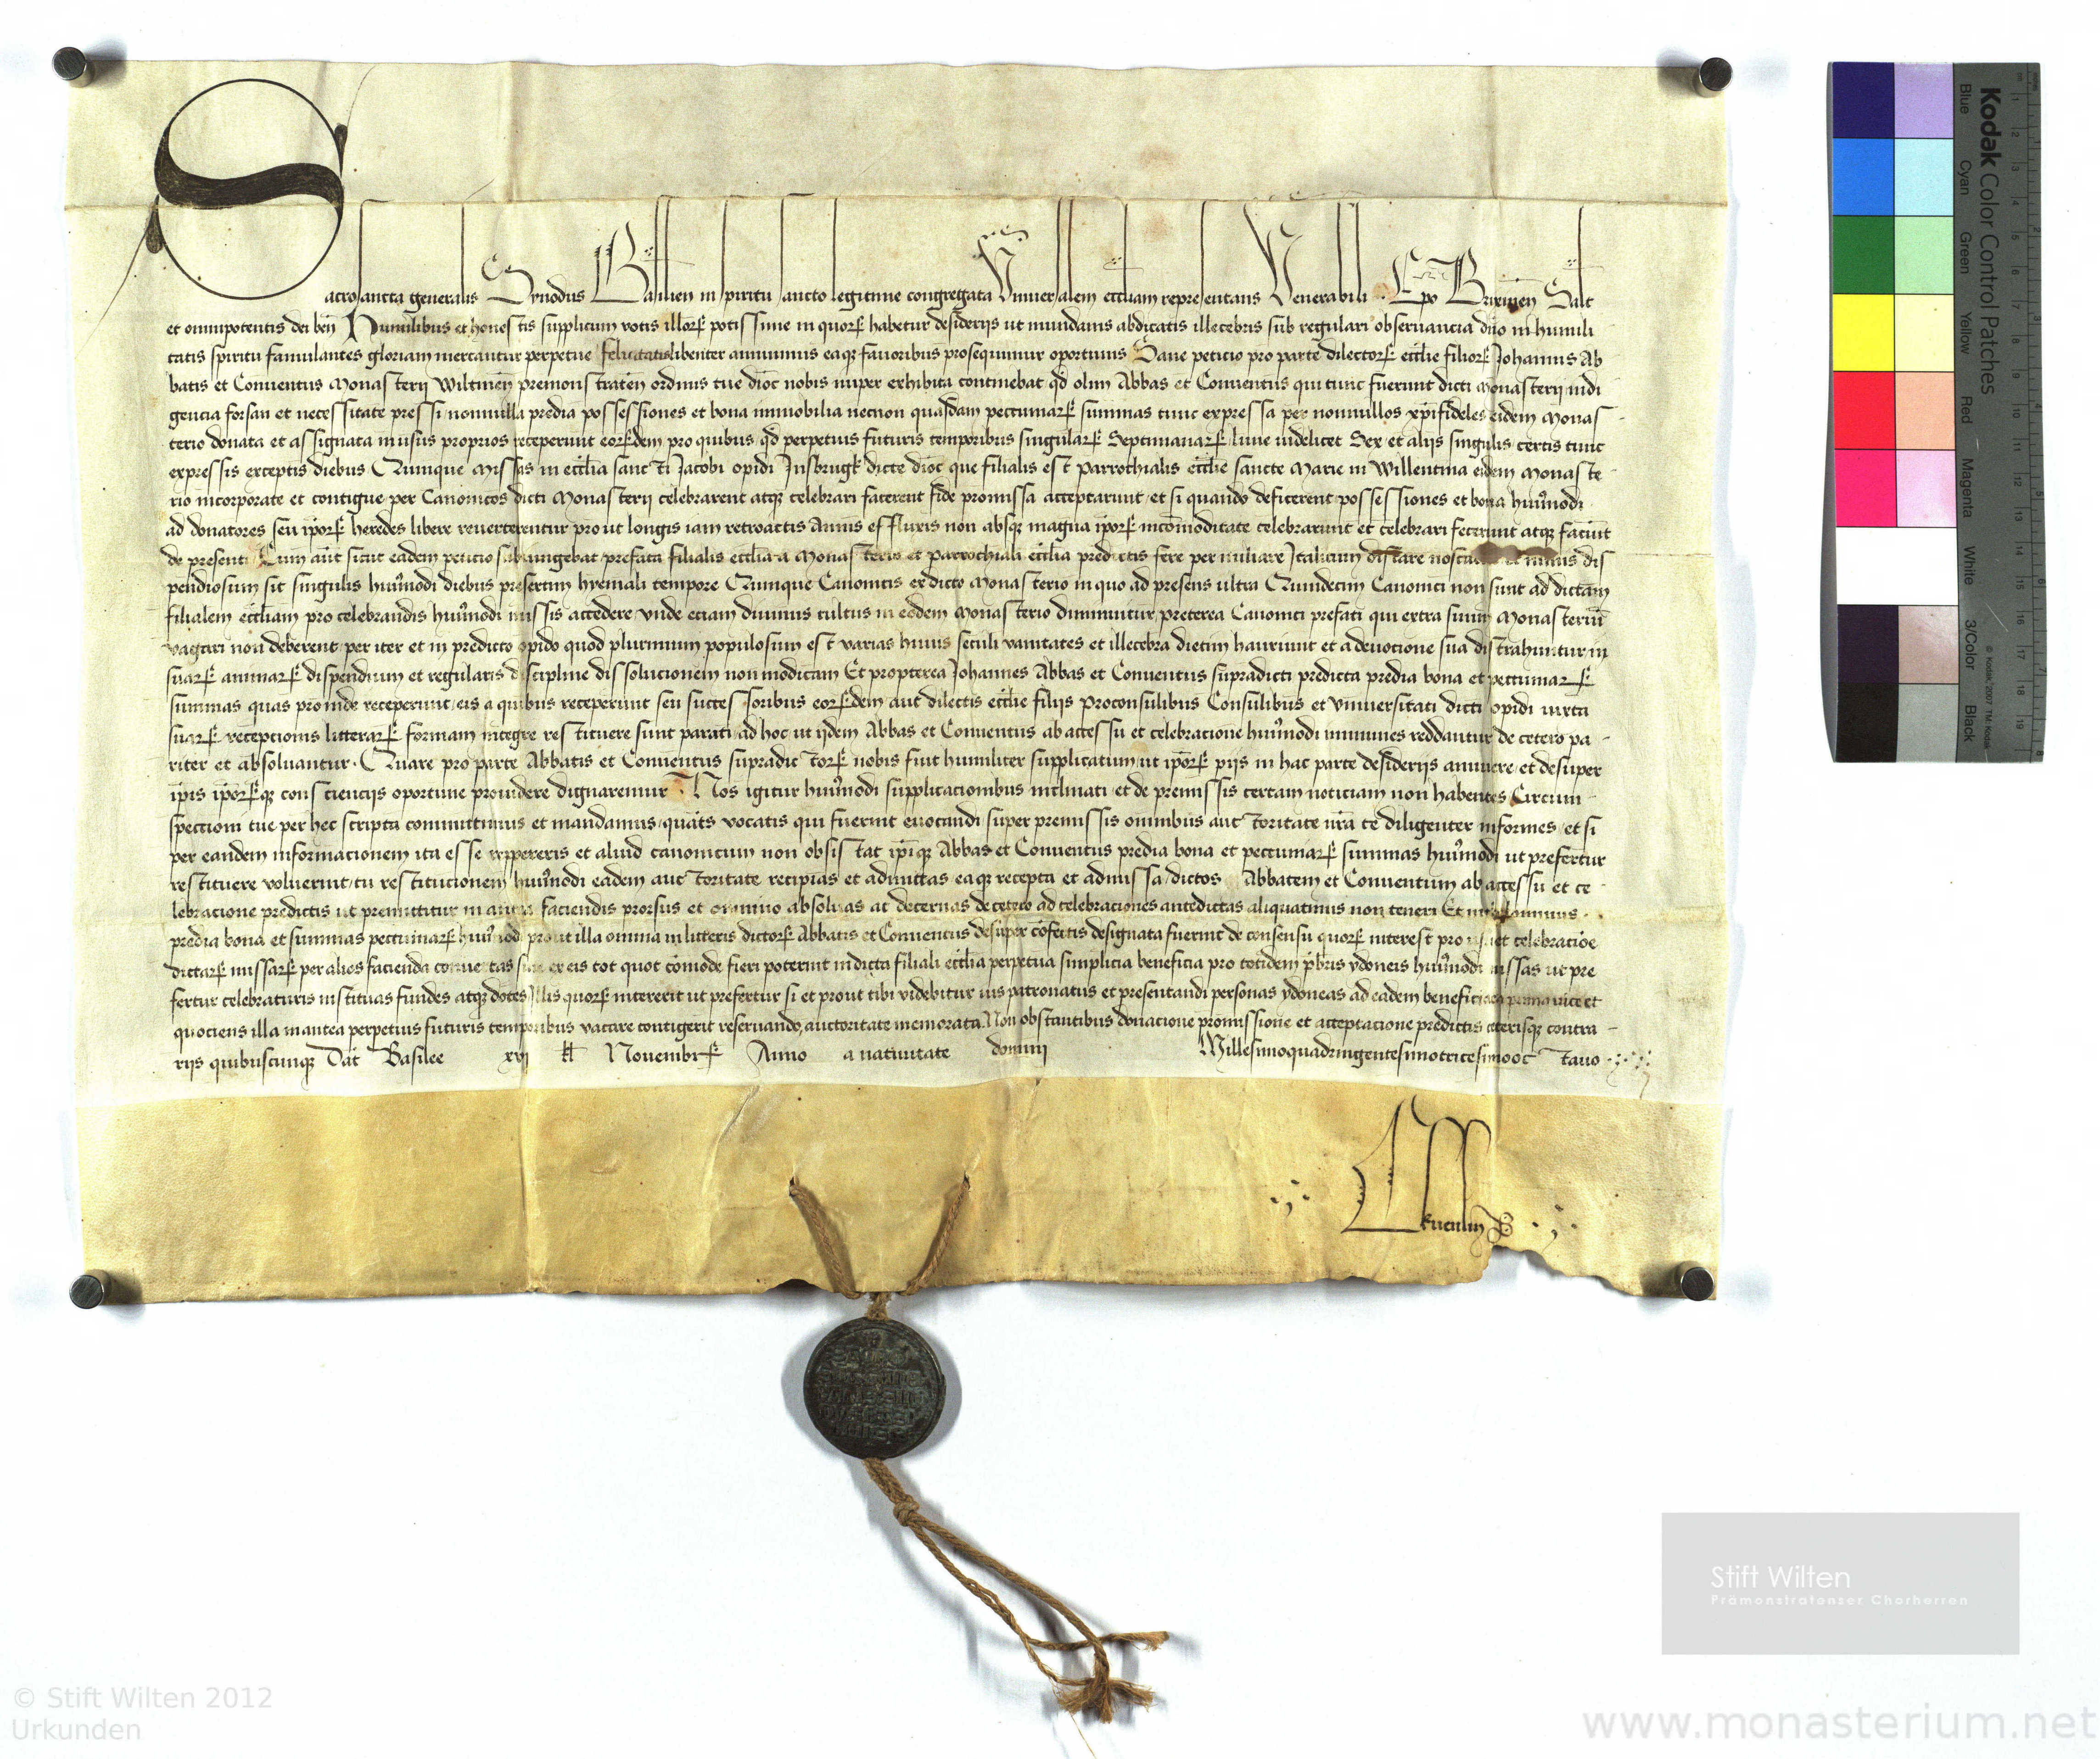 Sacrosancta generalis Synodus Basilien̄ in spiritu sancto legitime congregata Vniuersalem eccl̄iam representans Venerabili . . Ep̄o Brixinen̄ Salt̄
et omnipotentis dei ben̄ Humilibus et honestis supplicum votis illorꝝ potissime in quorꝝ habetur desiderijs ut mundanis abdicatis illecebris sub regulari obseruancia dn̄o in humili
tatis spiritu famulantes gloriam mereantur perpetue felicitatis libenter annuimus eaqꝫ fauoribus prosequimur oportunis Sane peticio pro parte dilectorꝝ eccl̄ie filiorꝝ Johannis Ab
batis et Conuentus Monasterij Wiltinen̄ premonstraten̄ ordinis tue dioc̄ nobis nuper exhibita continebat qd̄ olim Abbas et Conuentus qui tunc fuerunt dicti Monasterij indi
gencia forsan et necessitate pressi nonnulla predia possessiones et bona immobilia necnon quasdam pecuniarꝝ summas tunc expressa per nonnullos xp̄ifideles eidem Monas-
terio donata et assignata in usus proprios receperunt eorꝝdem pro quibus qd̄ perpetuis futuris temporibus singularꝝ Septimanarꝝ lune uidelicet Sex et alijs singulis certis tunc
expressis exceptis diebus Quinque Missas in eccl̄ia sancti Jacobi opidi Insbrugk dicte dioc̄ que filialis est parrochialis eccl̄ie sancte Marie in Willentina eidem Monaste
rio incorporate et contigue per Canonicos dicti Monasterij celebrarent atqꝫ celebrari facerent fide promissa acceptarunt et si quando deficerent possessiones et bona hui9modi
ad donatores seu ip̄orꝝ heredes libere reuerterentur prout longis iam retroactis Annis effluxis non absqꝫ magna ip̄orꝝ incōmoditate celebrarunt et celebrari fecerunt atqꝫ faciunt
de presenti Cum aut̄ sicut eadem peticio subiungebat prefata filialis eccl̄ia a Monasterio et parrochiali eccl̄ia predictis fere per miliare Italicum distare et nimis dis
pendiosum sit singulis hui9modi diebus presertim hyemali tempore Quinque Canonicis ex dicto Monasterio in quo ad presens ultra Quindecim Canonici non sunt ad dictam
filialem eccl̄iam pro celebrandis hui9modi missis accedere vnde eciam diuinus cultus in eodem Monasterio diminuitur preterea Canonici prefati qui extra suum Monasteriū
vagari non deberent per iter et in predicto opido quod plurimum populosum est varias huius seculi vanitates et illecebra dietim hauriunt et a deuocione sua distrahuntur in
suarꝝ animarꝝ dispendium et regularis discipline dissolucionem non modicam Et propterea Johannes Abbas et Conuentus supradicti predicta predia bona et pecuniarꝝ
summas quas proinde receperunt eis a quibus receperunt seu successoribus eorꝝdem aut dilectis eccl̄ie filijs Proconsulibus Consulibus et vniuersitati dicti opidi iuxta
suarꝝ recepcionis litterarꝝ formam integre restituere sunt parati ad hoc ut ijdem Abbas et Conuentus ab accessu et celebracione hui9modi immunes reddantur de cetero pa-
riter et absoluantur. Quare pro parte Abbatis et Conuentus supradictorꝝ nobis fuit humiliter supplicatum ut ip̄orꝝ pijs in hac parte desiderijs annuere et desuper
ip̄is ip̄orꝝqꝫ consciencijs oportune prouidere dignaremur Nos igitur hui9modi supplicacionibus inclinati et de premissis certam noticiam non habentes Circum-
spectioni tue per hec scripta committimus et mandamus quat̄9 vocatis qui fuerint euocandi super premissis omnibus auctoritate nr̄a te diligenter informes et si
per eandem informacionem ita esse reppereris et aliud canonicum non obsistat ip̄iqꝫ Abbas et Conuentus predia bona et pecuniarꝝ summas hui9modi ut prefertur
restituere voluerint tu restitucionem hui9modi eadem auctoritate recipias et admittas eaqꝫ recepta et admissa dictos Abbatem et Conuentum ab accessu et ce-
lebracione predictis ut premittitur in antea faciendis prorsus et omnino absoluas ac decernas de cetero ad celebraciones antedictas aliquatinus non teneri Et nichilominus
predia bona et summas pecuniarꝝ hui9modi prout illa omnia in litteris dictorꝝ Abbatis et Conuentus desuper cōfectis designata fuerint de consensu quorꝝ interest pro celebracōe
dictarꝝ missarꝝ per alios facienda conuertas siue ex eis tot quot cōmode fieri poterint in dicta filiali eccl̄ia perpetua simplicia beneficia pro totidem p̄bris ydoneis hui9modi missas ut pre
fertur celebraturis instituas fundes atqꝫ dotes Illis quorꝝ intererit ut prefertur si et prout tibi videbitur ius patronatus et presentandi personas ydoneas ad eadem beneficia prima uice et
quociens illa inantea perpetuis futuris temporibus vacare contigerit reseruando auctoritate memorata Non obstantibus donacione promissione et acceptacione predictis ceterisqꝫ contra-
rijs quibuscunqꝫ Dat̄ Basilee xvij kl̄ Nouembrꝝ Anno a natiuitate domini Millesimoquadringentesimotricesimooctauo
Kodak Color Control Patches
Blue Cyan Green Yellow Red Magenta White 3/Color Black
© Kodak, 2007 TM: Kodak
Stift Wilten
Prämonstratenser Chorherren
© Stift Wilten 2012
Urkunden
www.monasterium.net